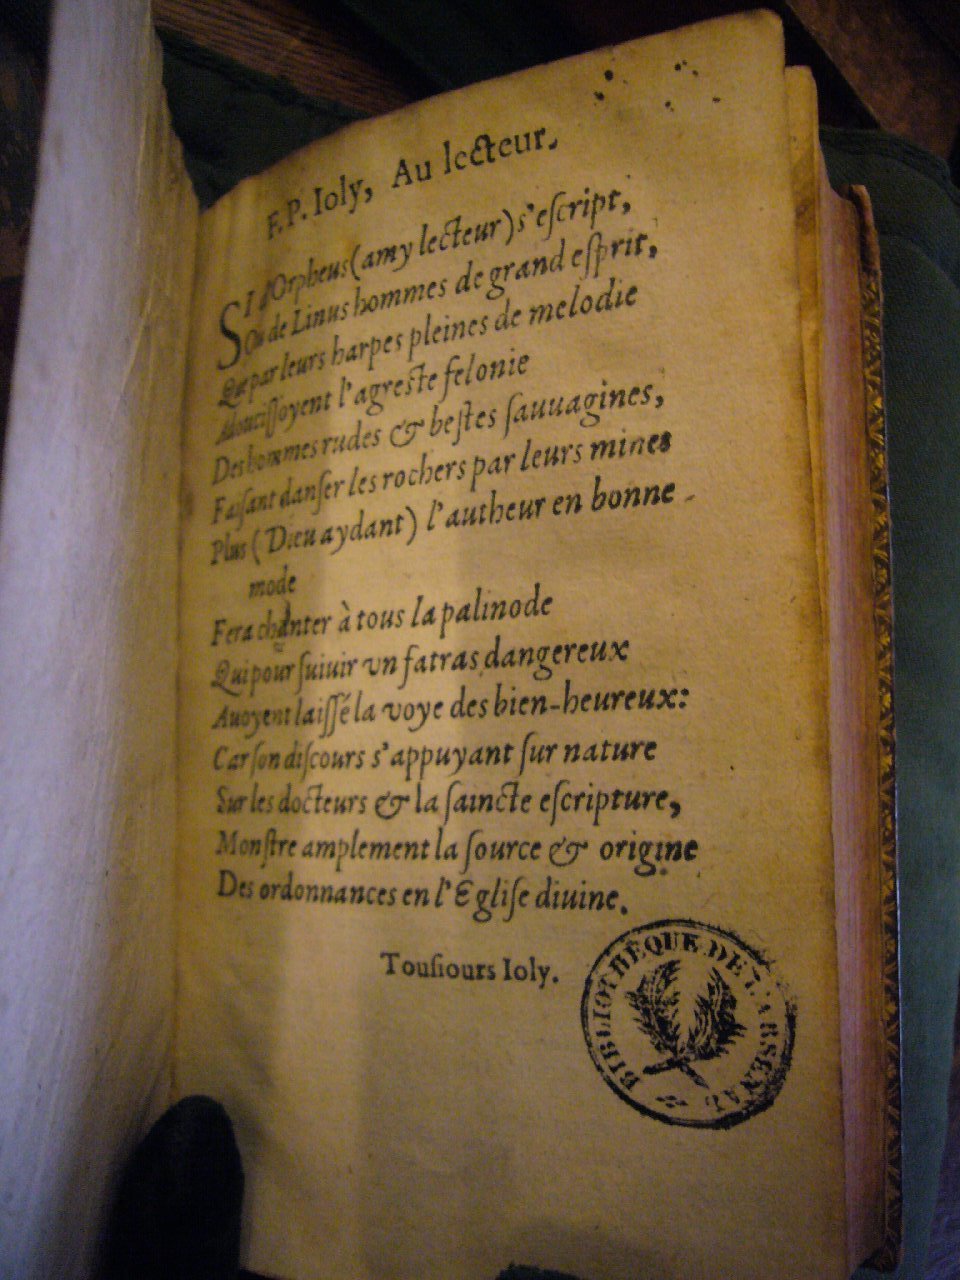 F. P. Ioly, Au lecteur.
SI d'Orpheus (amy lecteur) s'eſcript,
Ou de Linus hommes de grand eſprit,
Que par leurs harpes pleines de melodie
Adouciſſoyent l'agreſte felonie
Des hommes rudes & beſtes ſauuagines,
Faiſant danſer les rochers par leurs mines
Plus (Dieu aydant) l'autheur en bonne
mode
Fera chanter à tous la palinode
Qui pour ſuiuir vn fatras dangereux
Auoyent laiſſé la voye des bien-heureux:
Car ſon diſcours s'appuyant ſur nature
Sur les docteurs & la ſaincte eſcripture,
Monſtre amplement la ſource & origine
Des ordonnances en l'Egliſe diuine.
Touſiours Ioly.
BIBLIOTHEQUE DE L'ARSENAL